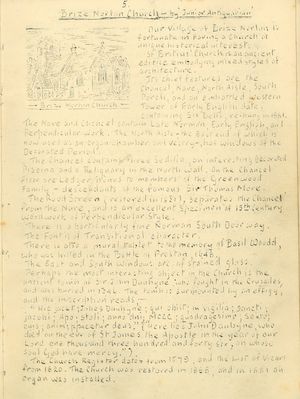 5
Brize Norton Church — by "Junior Antiquarian"
Our Village of Brize Norton is
fortunate in having a Church of
unique historical interest.
St. Britius' Church is an ancient
edifice embodying mixed styles of
architecture.
Its chief features are the
Chancel, Nave, North Aisle, South
Porch, and an embattled Western
Tower of Early English date,
containing Six Bells, perhaps in
Brize Norton Church
The Nave and Chancel contain Late Norman, Early English, and
Perpendicular work. The North Aisle - the East end of which is
now used as an organ chamber and vestry, has windows of the
Decorated Period.
The Chancel contains Three Sedilia, an interesting Recorded
Piscina and a Reliquary in the North Wall. On the Chancel
Floor are Ledger Stones to members of the Greenwood
Family - descendants of the famous Sir Thomas More.
The Rood Screen, restored in 1911, separates the Chancel
from the Nave, and is an excellent Specimen of 15th century
Woodwork of Perpendicular Style.
There is a particularly fine Norman South Doorway.
The Font is of Transitional character.
There is also a mural tablet to the memory of Basil Woodd,
who was killed in the Battle of Preston, 1648.
The East and South Windows are of stained glass.
Perhaps the most interesting object in the Church is the
ancient tomb of Sir John Daubygne, who fought in the Crusades,
and was buried in 1346. The tomb is surmounted by an effigy,
and the inscription reads —
"Hic jacet Johes Daubygne; qui obiit in vigilia; Sancti
Jacobi; Apostoli; anno dni MCCC; quadragesimo; sexto;
cuis; anime; propicietur deus." (Here lies John Daubygne, who
died on the eve of St James the Apostle in the year of our
Lord one thousand three hundred and forty six, on whose
soul God have mercy.").
The Church Register dates from 1573, and the List of Vicars
from 1620. The Church was restored in 1868, and in 1881 an
organ was installed.